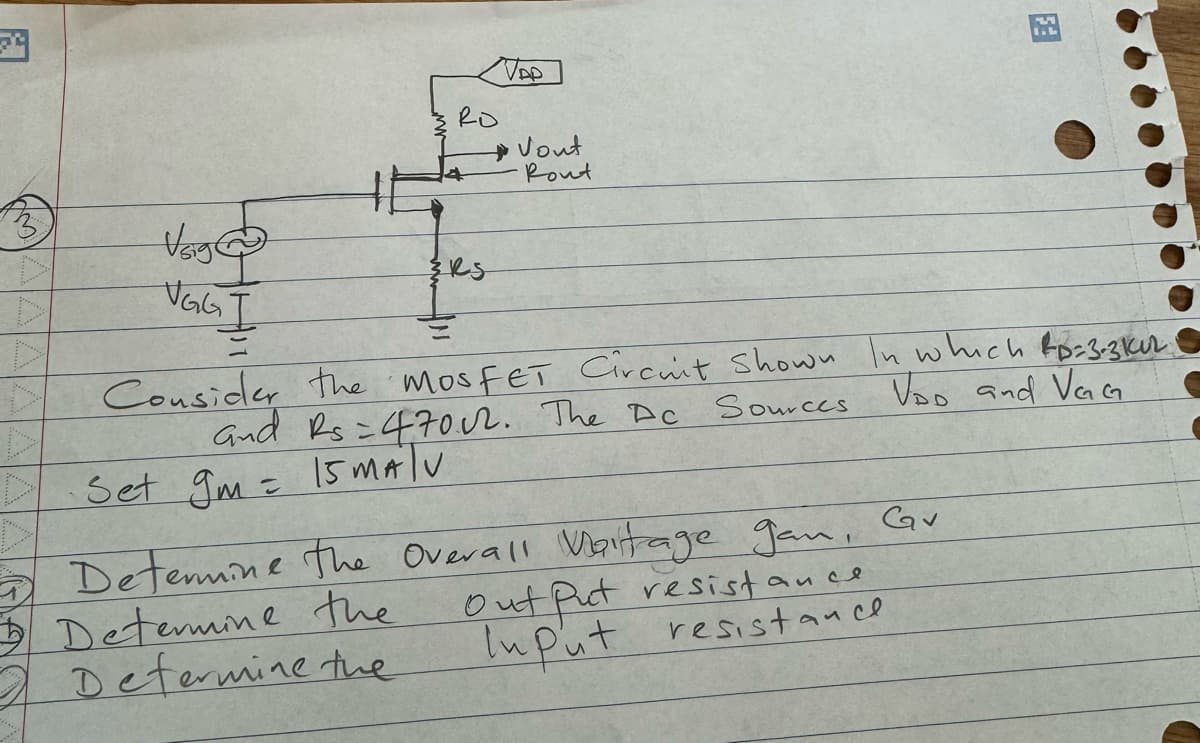 VDD
RD
Vout
Rout
3
Vsig
RS
VGG
Consider the MOSFET Circuit Shown In which RD=3.3KΩ
and Rs=470Ω. The DC Sources VDD and VGG
Set gm = 15 mA/V
Determine the Overall Voltage gan, Gv
b Determine the output resistance
Determine the Input resistance